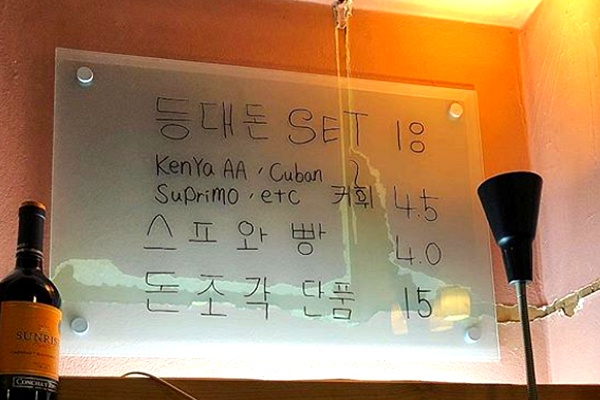 등대돈 SET 18
KenYa AA, Cuban
SuPrimo, etc 커휘 4.5
스프와 빵 4.0
돈조각 단품 15
SUNRISE
CONCHA Y